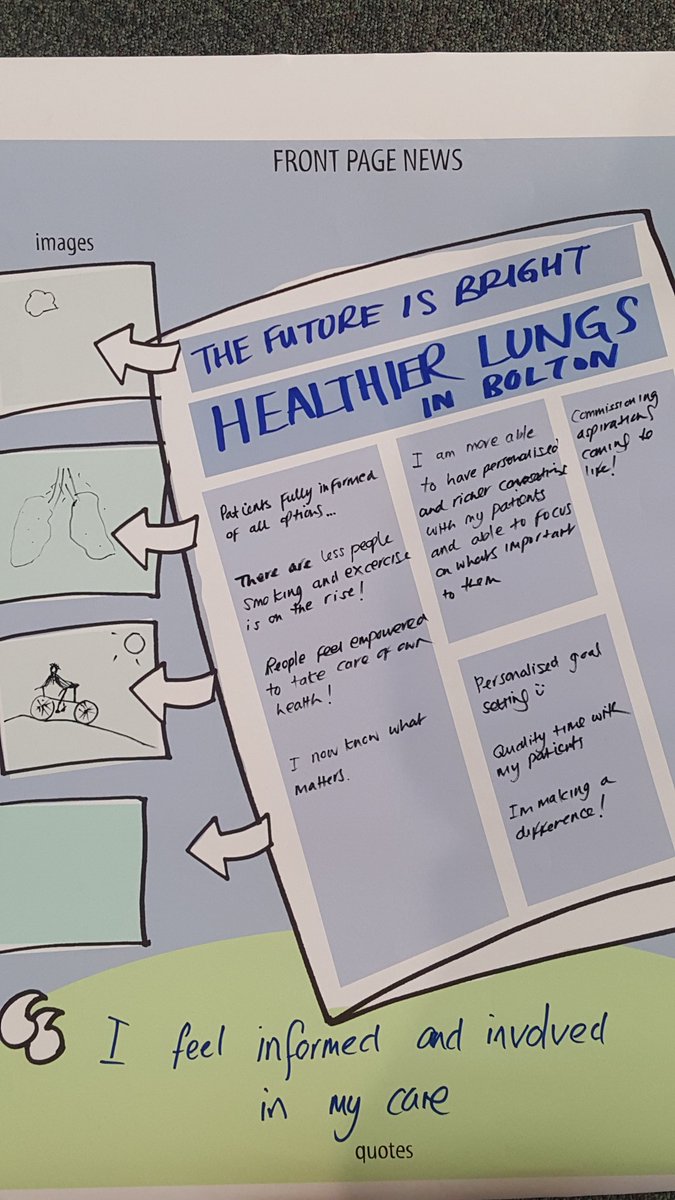 FRONT PAGE NEWS
images
THE FUTURE IS BRIGHT
HEALTHIER LUNGS
IN BOLTON
Patients fully informed
of all options...
There are less people
smoking and excercise
is on the rise!
People feel empowered
to take care of own
health!
I now know what
matters.
I am more able
to have personalised
and richer
with my patients
and able to focus
on whats important
to them
Commissioning
aspirations
coming to
life!
Personalised goal
setting
Quality time with
my patients
Im making a
difference!
I feel informed and involved
in my care
quotes